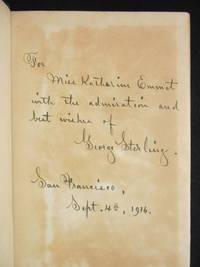 For
Miss Katharine Emmet
with the admiration and
best wishes of
George Sterling.
San Francisco,
Sept. 4th, 1916.